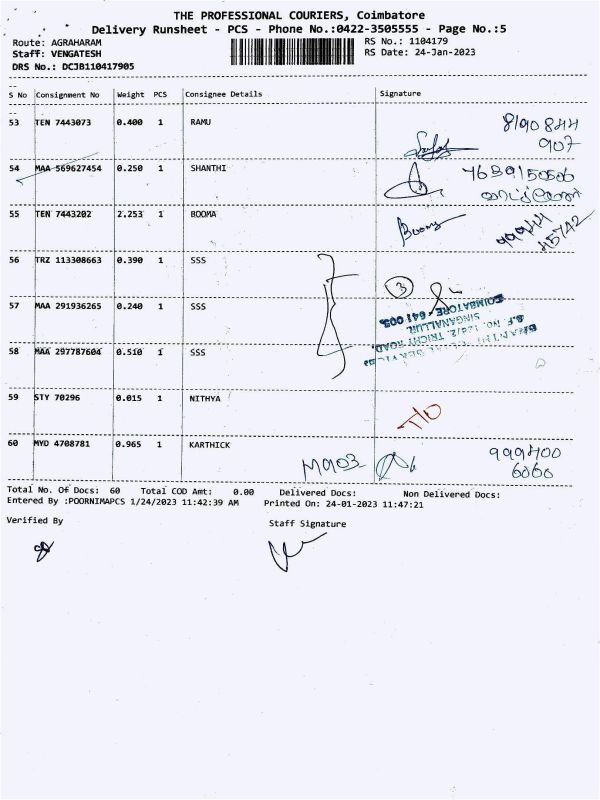 THE PROFESSIONAL COURIERS, Coimbatore
Delivery Runsheet - PCS - Phone No.:0422-3505555 - Page No.:5
Route: AGRAHARAM
RS No.: 1104179
Staff: VENGATESH
RS Date: 24-Jan-2023
DRS No.: DCJB110417905
S No Consignment No Weight PCS Consignee Details Signature
53 TEN 7443073 0.400 1 RAMU 8190844
907
54 MAA 569627454 0.250 1 SHANTHI 7639150506
55 TEN 7443202 2.253 1 BOOMA Booma 999444
45742
56 TRZ 113308663 0.390 1 SSS 3
57 MAA 291936265 0.240 1 SSS
COIMBATORE - 641 005.
SINGANALLUR,
TRICHY ROAD,
58 MAA 297787604 0.510 1 SSS
59 STY 70296 0.015 1 NITHYA T/O
60 MYD 4708781 0.965 1 KARTHICK M903 999400
6060
Total No. Of Docs: 60 Total COD Amt: 0.00 Delivered Docs: Non Delivered Docs:
Entered By :POORNIMAPCS 1/24/2023 11:42:39 AM Printed On: 24-01-2023 11:47:21
Verified By Staff Signature